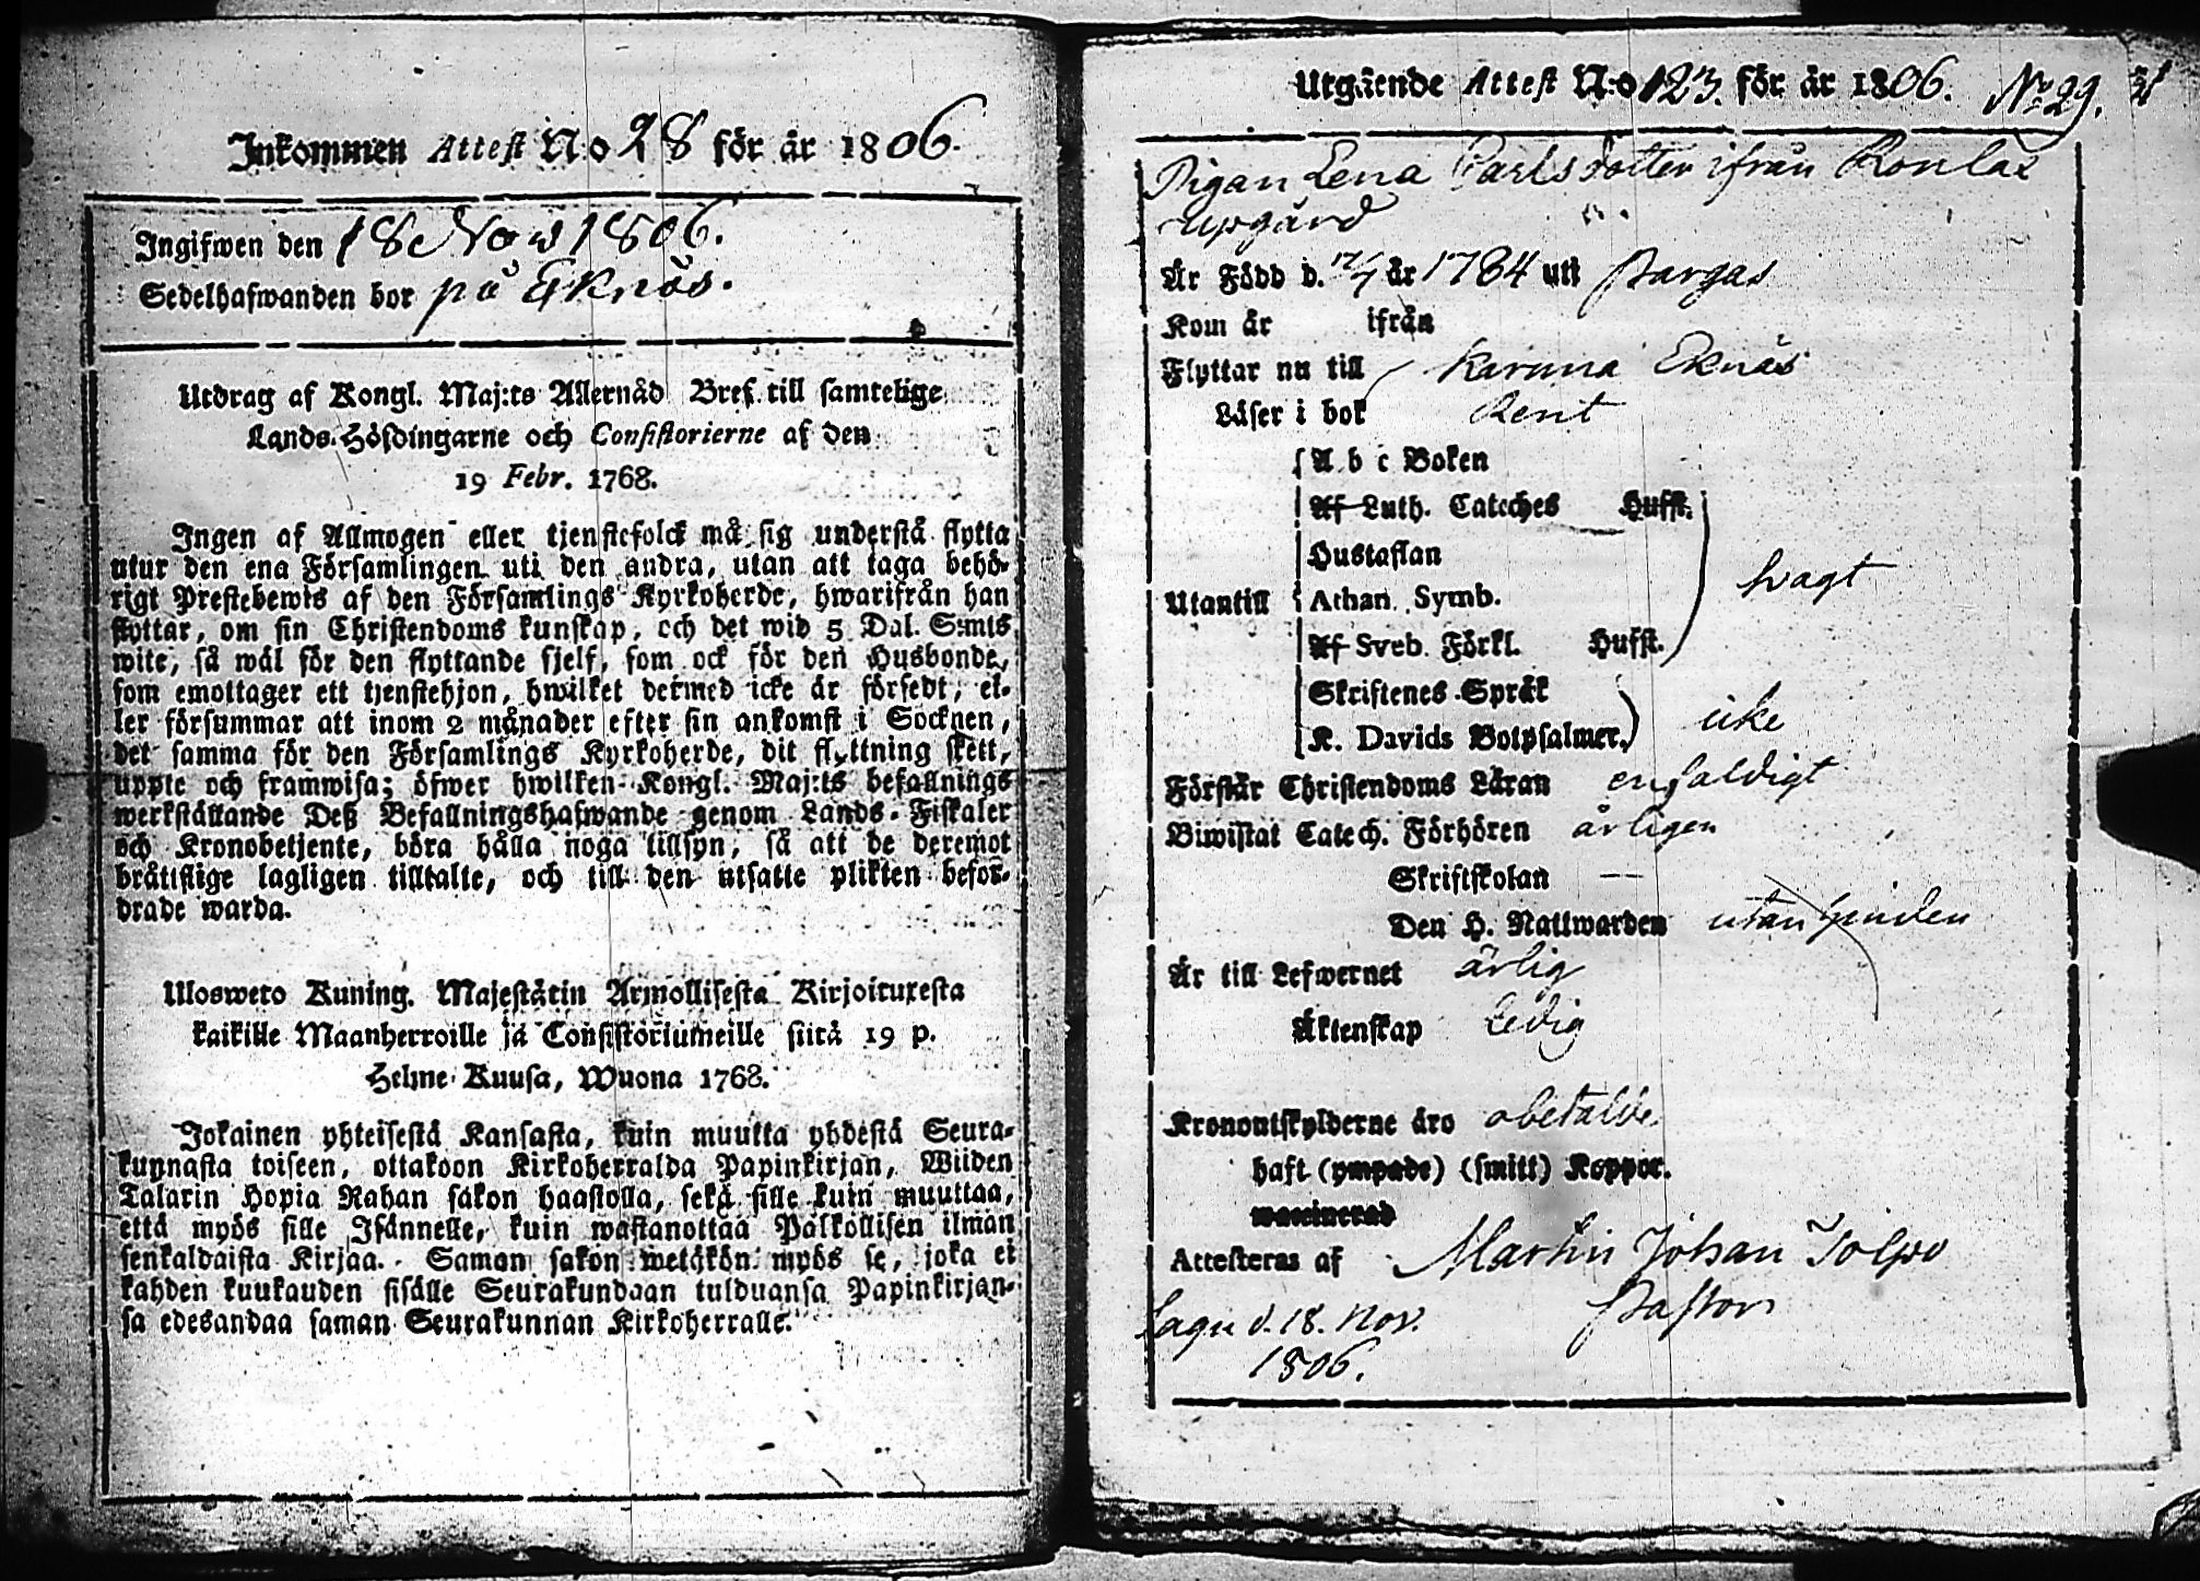 Inkommen Attest No 28 för år 1806.
Ingifwen den 18 Nov 1806.
Sedelhafwanden bor på Eknäs.
Utdrag af Kongl. Maj:ts Allernåd Bref till samtelige
Lands-Höfdingarne och Consistorierne af den
19 Febr. 1768.
Ingen af Allmogen eller tjenstefolck må sig understå flytta
utur den ena Församlingen uti den andra, utan att taga behö-
rigt Prestebewis af den Församlings Kyrkoherde, hwarifrån han
flyttar, om sin Christendoms kunskap, och det wid 5 Dal. S:mts
wite, så wäl för den flyttande sjelf, som ock för den Husbonde,
som emottager ett tjenstehjon, hwilket dermed icke är försedt, el-
ler försummar att inom 2 månader efter sin ankomst i Socknen,
det samma för den Församlings Kyrkoherde, dit flyttning skett,
uppte och framwisa; öfwer hwilken Kongl. Maj:ts befallnings
werkställande Deß Befallningshafwande genom Lands-Fiskaler
och Kronobetjente, böra hålla noga tillsyn, så att de deremot
bråttslige lagligen tilltalte, och till den utsatte plikten befor-
drade warda.
Ulosweto Kuning. Majestätin Armollisesta Kirjoituxesta
kaikille Maanherroille ja Consistoriumeille siitä 19 p.
Helme Kuusa, Wuona 1768.
Jokainen yhteisestä Kansasta, kuin muutta yhdestä Seura-
kunnasta toiseen, ottakoon Kirkoherralda Papinkirjan, Wiiden
Talarin Hopia Rahan sakon haastolla, sekä sille kuin muuttaa,
että myös sille Isännelle, kuin wastanottaa Palkollisen ilman
senkaldaista Kirjaa. Saman sakon wetäkön myös se, joka ei
kahden kuukauden sisälle Seurakundaan tulduansa Papinkirjan-
sa edesandaa saman Seurakunnan Kirkoherralle.
Utgående Attest N:o 123. för år 1806. No 29.
Pigan Lena Carlsdotter ifrån Ronlax
Upgård
Är Född d. 12/7 år 1784 uti Pargas
Kom år ifrån
Flyttar nu till Karuna Eknäs
Läser i bok Rent
A b c Boken
Af Luth. Cateches Hufst.
Hustaflan
Utantill Athan. Symb. swagt
Af Sveb. Förkl. Hufst.
Skriftenes Språk
K. Davids Botpsalmer. icke
Förstår Christendoms Läran enfaldigt
Biwistat Catech. Förhören årligen
Skriftskolan —
Den H. Nattwarden utan hinder
Är till Lefwernet ärlig
Äktenskap Ledig
Kronoutskylderne äro obetalde
haft (ympade) (smitt) Koppor.
waccinerad
Attesteras af Martin Johan Tolpo
Pastor
Sagu d. 18. Nov.
1806.